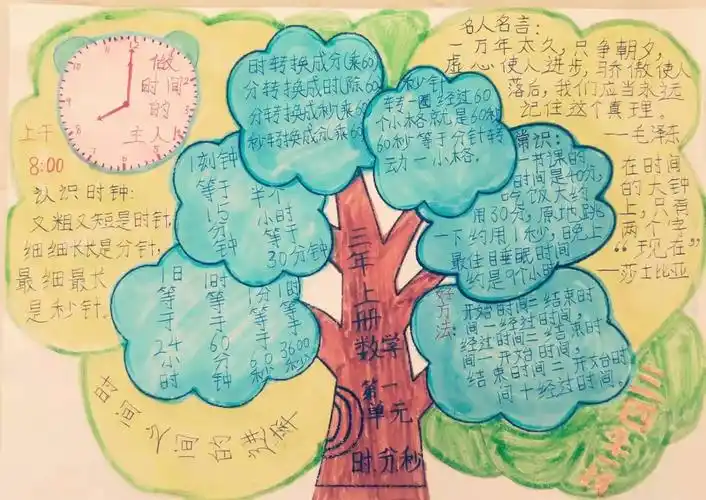 做
时间
的
主人
上午
8:00
认识时钟:
又粗又短是时针,
细细长长是分针,
最细最长
是秒针。
时转换成分(乘60)
分转换成时(除60)
分转换成秒(乘60)
秒转换成分(
秒针
转一圈经过60
个小格就是60秒
60秒等于分针转
动一小格。
名人名言:
一万年太久,只争朝夕,
虚心使人进步,骄傲使人
落后,我们应当永远
记住这个真理。
——毛泽东
1刻钟
等于
15
分钟
半个
小时
等于
30分钟
常识:
一节课的
时间是40分,
吃饭大约
用30分,原地跳
一下约用1秒,晚上
最佳睡眠时间
约是9个小时
在时间
的大钟
上,只有
两个字
“现在”
——莎士比亚
1日
等于
24
小时
1时
等于
60
分钟
1分
等于
60
秒
1时
等于
3600
秒
方法:
开始时间=结束时
间-经过时间,
经过时间=结束时
间-开始时间,
结束时间=开始时
间+经过时间。
三年上册
数学
第一
单元
时分秒
时间
间的进率